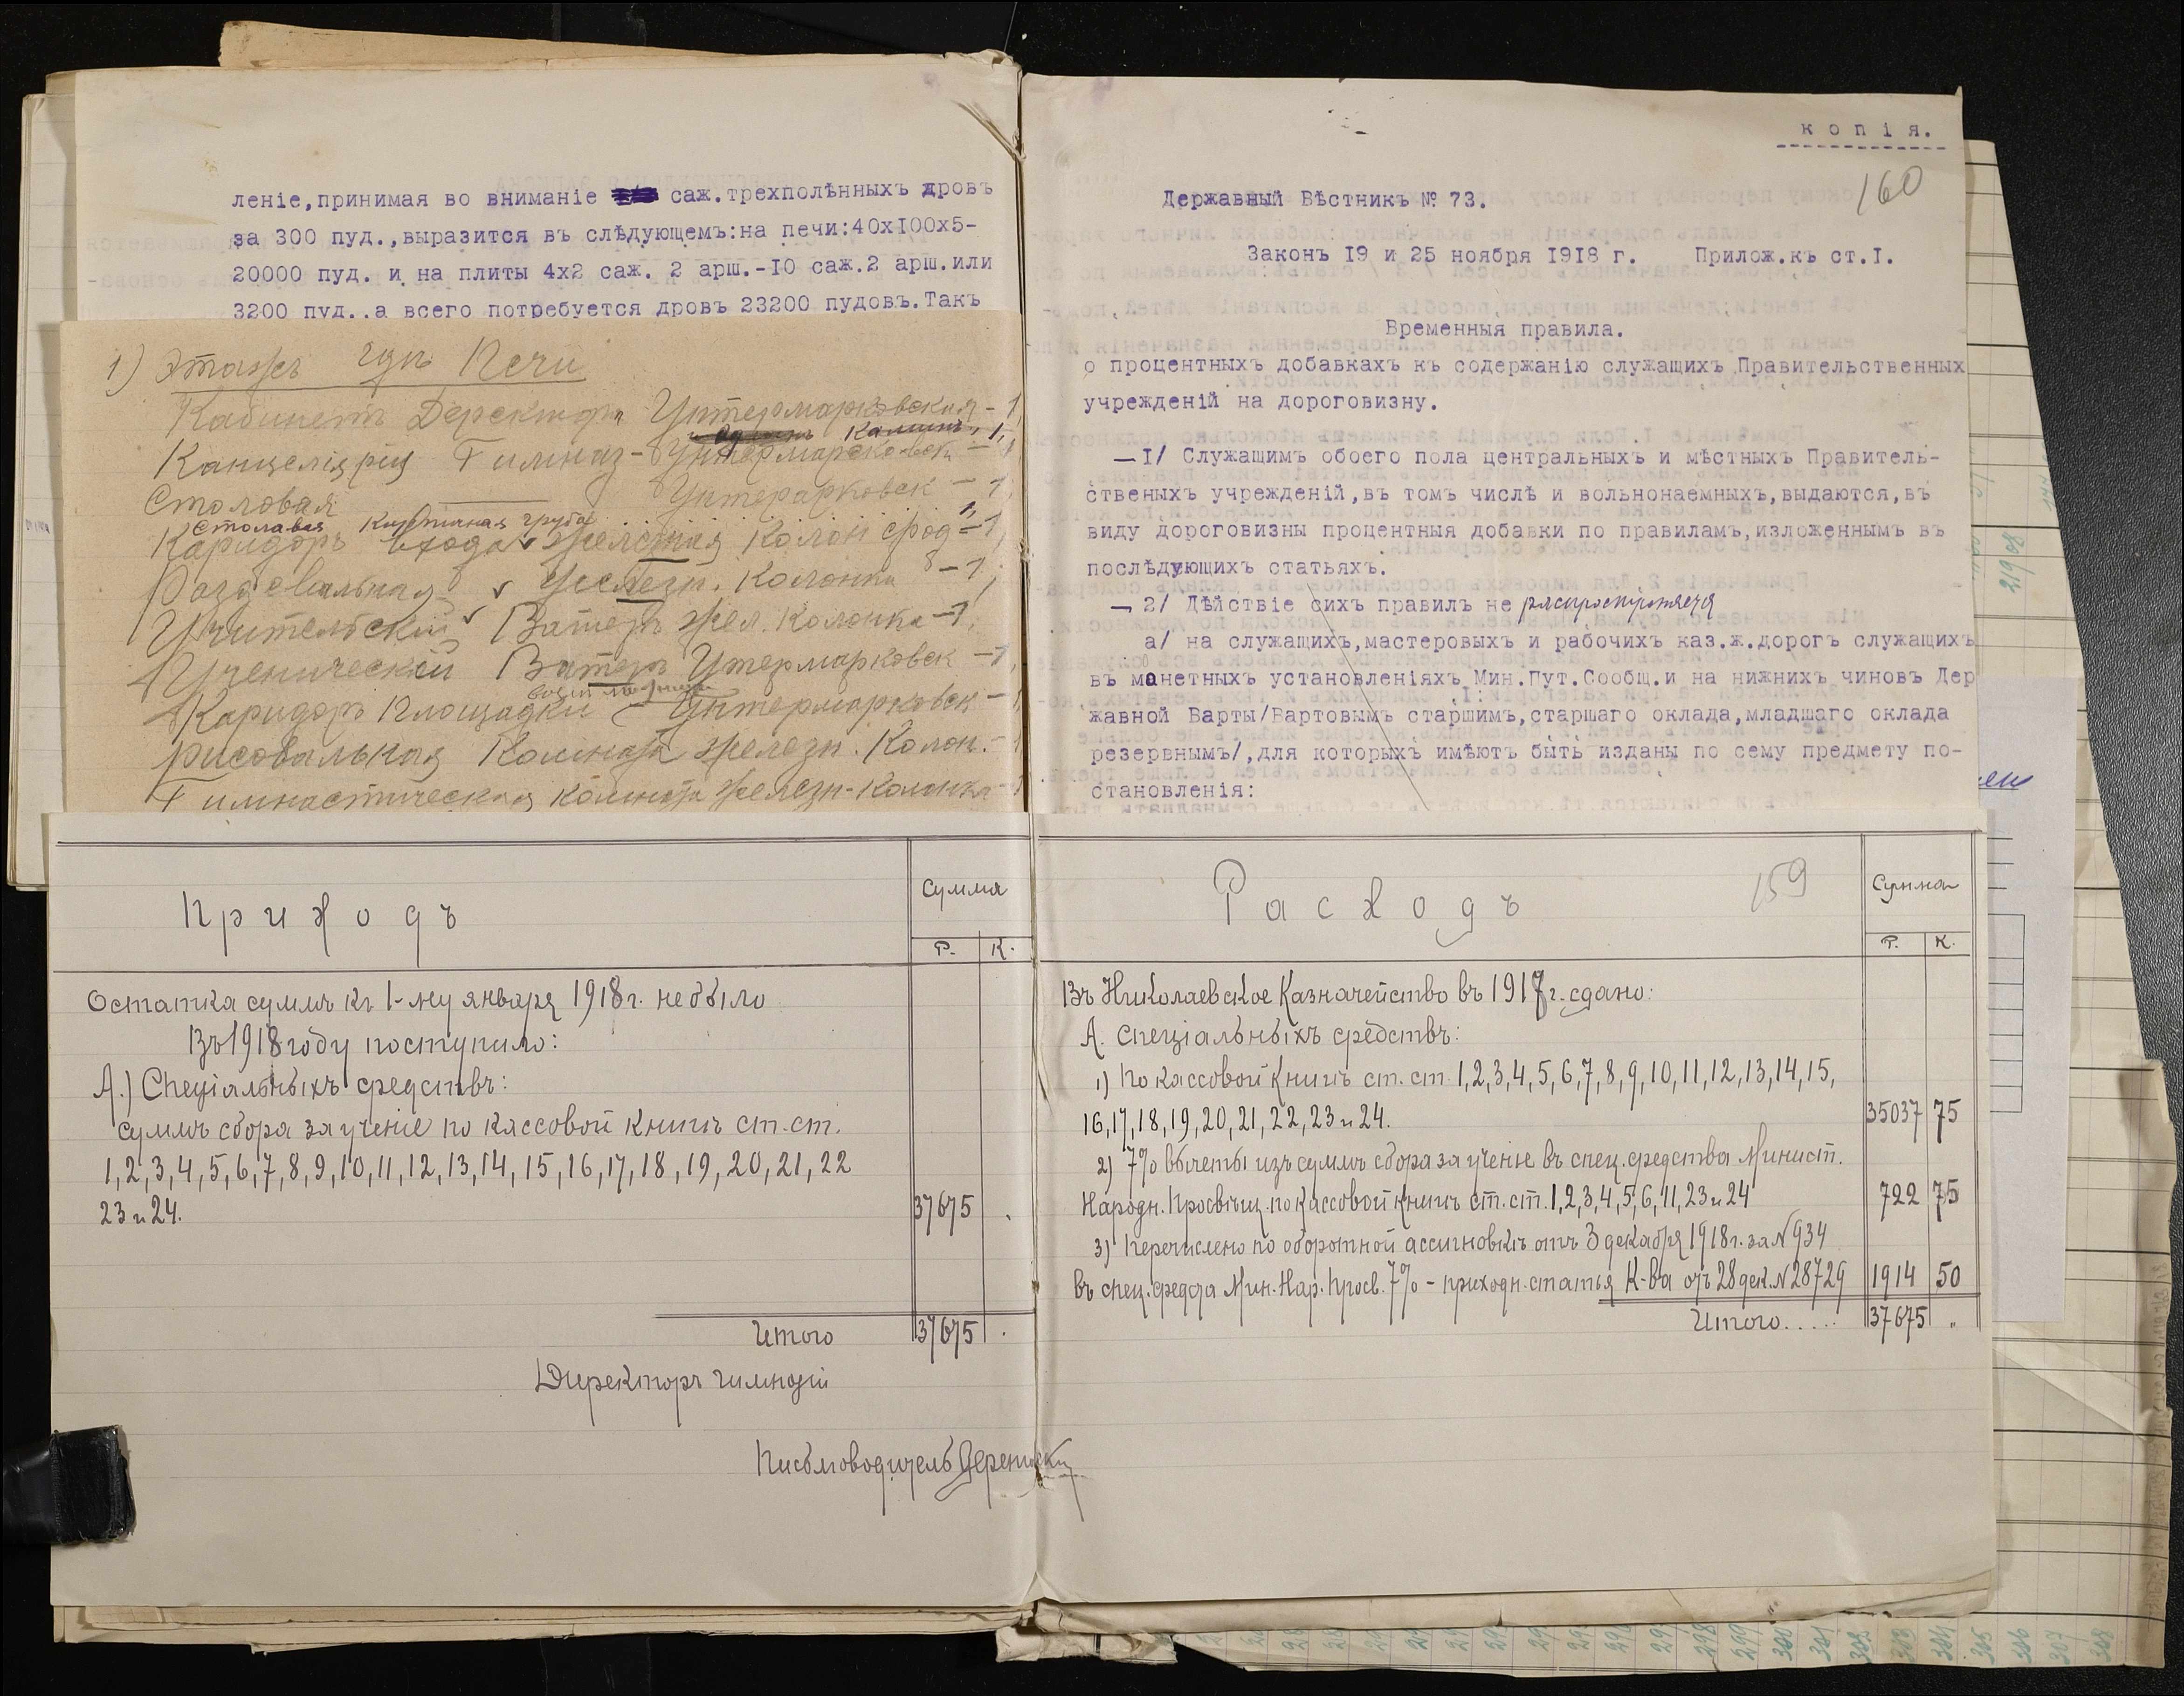 леніе,принимая во вниманіе саж.трехполѣнныхъ дровъ
за 300 пуд.,выразится въ слѣдующемъ:на печи:40х100х5-
20000 пуд. и на плиты 4х2 саж. 2 арш.-10 саж.2 арш.или
3200 пуд.,а всего потребуется дровъ 23200 пудовъ.Такъ
1) Этажъ гдѣ Печи
Кабинетъ Деректора Унтермарковская - 1,
Канцелярія Гимназ- Унтермарковск - 1
Столовая Унтерарковск - 1,
Столавая Кирпичная груба 1,
Каридоръ входа желѣзная Колон - 1,
Раздевальная Желѣзн. Колонка - 1,
Учительскій Ватеръ Жел. Колонка - 1,
Ученическій Ватеръ Утермарковск - 1,
Каридоръ Площадки Унтермарковск - 1,
рисовальная Комната железн. Колон. - 1
Гимнастическая комната железн-Колонка 1
Приходъ
Сумма
Р. К.
Остатка суммъ къ 1-му января 1918 г. не было
Въ 1918 году поступило:
А.) Спеціальныхъ средствъ:
суммъ сбора за ученіе по кассовой книгѣ ст. ст.
1, 2, 3, 4, 5, 6, 7, 8, 9, 10, 11, 12, 13, 14, 15, 16, 17, 18, 19, 20, 21, 22
23 и 24. 37675 .
Итого 37675 .
Директоръ гимназіи
Письмоводитель
копія.
160
Державный Вѣстникъ № 73.
Законъ 19 и 25 ноября 1918 г. Прилож.къ ст.1.
Временныя правила.
о процентныхъ добавкахъ къ содержанію служащихъ Правительственныхъ
учрежденій на дороговизну.
—1/ Служащимъ обоего пола центральныхъ и мѣстныхъ Правитель-
ственыхъ учрежденій,въ томъ числѣ и вольнонаемныхъ,выдаются,въ
виду дороговизны процентныя добавки по правиламъ,изложеннымъ въ
послѣдующихъ статьяхъ.
— 2/ Дѣйствіе сихъ правилъ не распространяется
а/ на служащихъ,мастеровыхъ и рабочихъ каз.ж.дорогъ служащихъ
въ манетныхъ установленіяхъ Мин.Пут.Сообщ.и на нижнихъ чиновъ Дер
жавной Варты/Вартовымъ старшимъ,старшаго оклада,младшаго оклада
резервнымъ/,для которыхъ имѣютъ быть изданы по сему предмету по-
становленія:
Расходъ
159
Сумма
Р. К.
Въ Николаевское Казначейство въ 1918 г. сдано:
А. Спеціальныхъ средствъ:
1) По кассовой книгѣ ст. ст. 1, 2, 3, 4, 5, 6, 7, 8, 9, 10, 11, 12, 13, 14, 15,
16, 17, 18, 19, 20, 21, 22, 23 и 24. 35037 75
2) 7% вычеты изъ суммъ сбора за ученіе въ спец. средства Минист.
Народн. Просвѣщ. по кассовой книгѣ ст. ст. 1, 2, 3, 4, 5, 6, 11, 23 и 24 722 75
3) Перечислено по оборотной ассигновкѣ отъ 3 декабря 1918 г. за № 934
въ спец. средства Мин. Нар. Просв. 7% - приходн. статья К-ва отъ 28 дек. № 28729 1914 50
Итого..... 37675 „